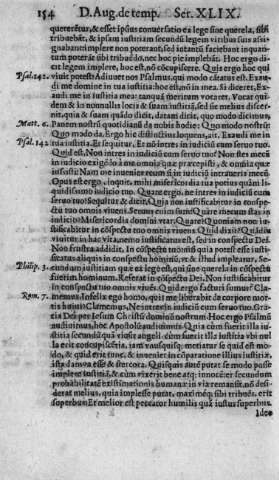 154 D. Aug. de temp. Ser. XLIX.
quereretur, & esset ipsius conuersatio ex lege sine querela, sibi
tribuebat, & ipsam iustitiam secundũ legem viribus suis assi-
gnabant implere non poterant, sed intantũ faciebant inquan-
tum poterãt
gustinus legem implere, hoc est, nõ cõcupiscere. Quis ergo hoc qui
Psal. 142. viuit potest? Adiuuet nos Psalmus, qui modo cãtatus est. Exau-
di me domine in tua iustitia: hoc est, nõ in mea. Si diceret, Ex-
audi me in iustitia mea: tanquã meritum vocaret. Vocat qui-
dem & in nonnullis locis & suam iustitiã, sed hîc melius discer-
nit, quia & suam quãdo dicit, datam dicit, quo modo dicimus,
Matt. 6. Panem nostrũ quotidianũ da nobis hodie: Quo modo nostrũ?
Quo modo da. Ergo hîc distinctius loquens, ait, Exaudi me in
Psal. 142. tua iustitia. Et sequitur, Et nõ intres in iudiciũ cum seruo tuo.
Quid est, Non intres in iudiciũ cum seruo tuo? Non stes mecũ
in iudicio exigẽdo à me omnia quæ præcepisti, & omnia quæ
iussisti. Nam me inuenies reum si in iudiciũ intraueris mecũ.
Opus est ergo, inquit, mihi misericordia tua potius quàm li-
quidissimo iudicio tuo. Quare ergo, Ne intres in iudiciũ cum
seruo tuo? Sequitur & dicit: Quia non iustificabitur in conspe-
ctu tuo omnis viuens. Seruus enim sum: Quare mecum stas in
iudicio? Misericordia dñi vtar. Quare? Quoniam non iu-
stificabitur in cõspectu tuo omnis viuens. Quid dixit? Quãdiu
viuitur in hac vita, nemo iustificatus est, sed in conspectu Dei.
Non frustra addidit, In cõspectu tuo: nisi quia potest esse iusti-
ficatus aliquis in conspectu hominũ, vt & istud impleatur, Se-
Philip. 3. cundum iustitiam quæ ex lege est, qui sine querela: in cõspectu
fuerim hominum. Refer ad in conspectu Dei, Non iustificabitur
in conspectu tuo omnis viuens. Quid ergo facturi sumus? Cla-
Rom. 7. memus, Infelix ego homo, quis me liberabit de corpore mor-
tis huius? Clamemus, Ne intres in iudiciũ cum seruo tuo. Gra-
tia Dei per Iesum Christũ dominũ nostrum. Hoc ergo Psalmũ
audiuimus, hoc Apostolũ audiuimus. Quia cùm fuerit illa iu-
stitia secundũ quã viuũt angeli, cùm fuerit illa iustitia vbi nul-
la erit concupiscẽtia, iam vnusquisq; metiatur se quid est mo-
do, & quid erit tunc, & inueniet in cõparatione illius iustitiæ,
ista damna esse & stercora. Quisquis autẽ putat se modo posse
implere iustitiã, & cùm vixerit bene atq; innocẽter secundum
probabilitatẽ existimationis humanæ in via remansit, nõ desi-
derat melius, quia implesse putat, maximéq; sibi tribuẽs, erit
superbus: Et melior est peccator humilis quàm iustus superbus.
Ideo